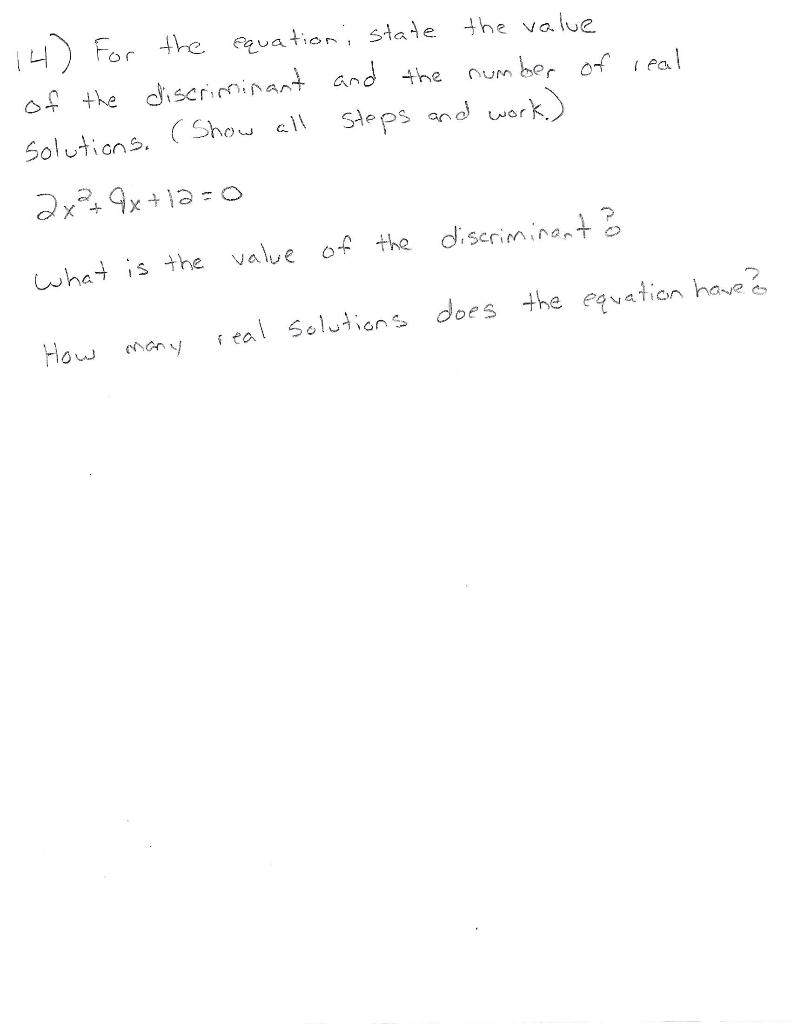 14) For the equation; state the value
of the discriminant and the number of real
solutions. (Show all steps and work.)
2x²+9x+12=0
What is the value of the discriminant?
How many real solutions does the equation have?